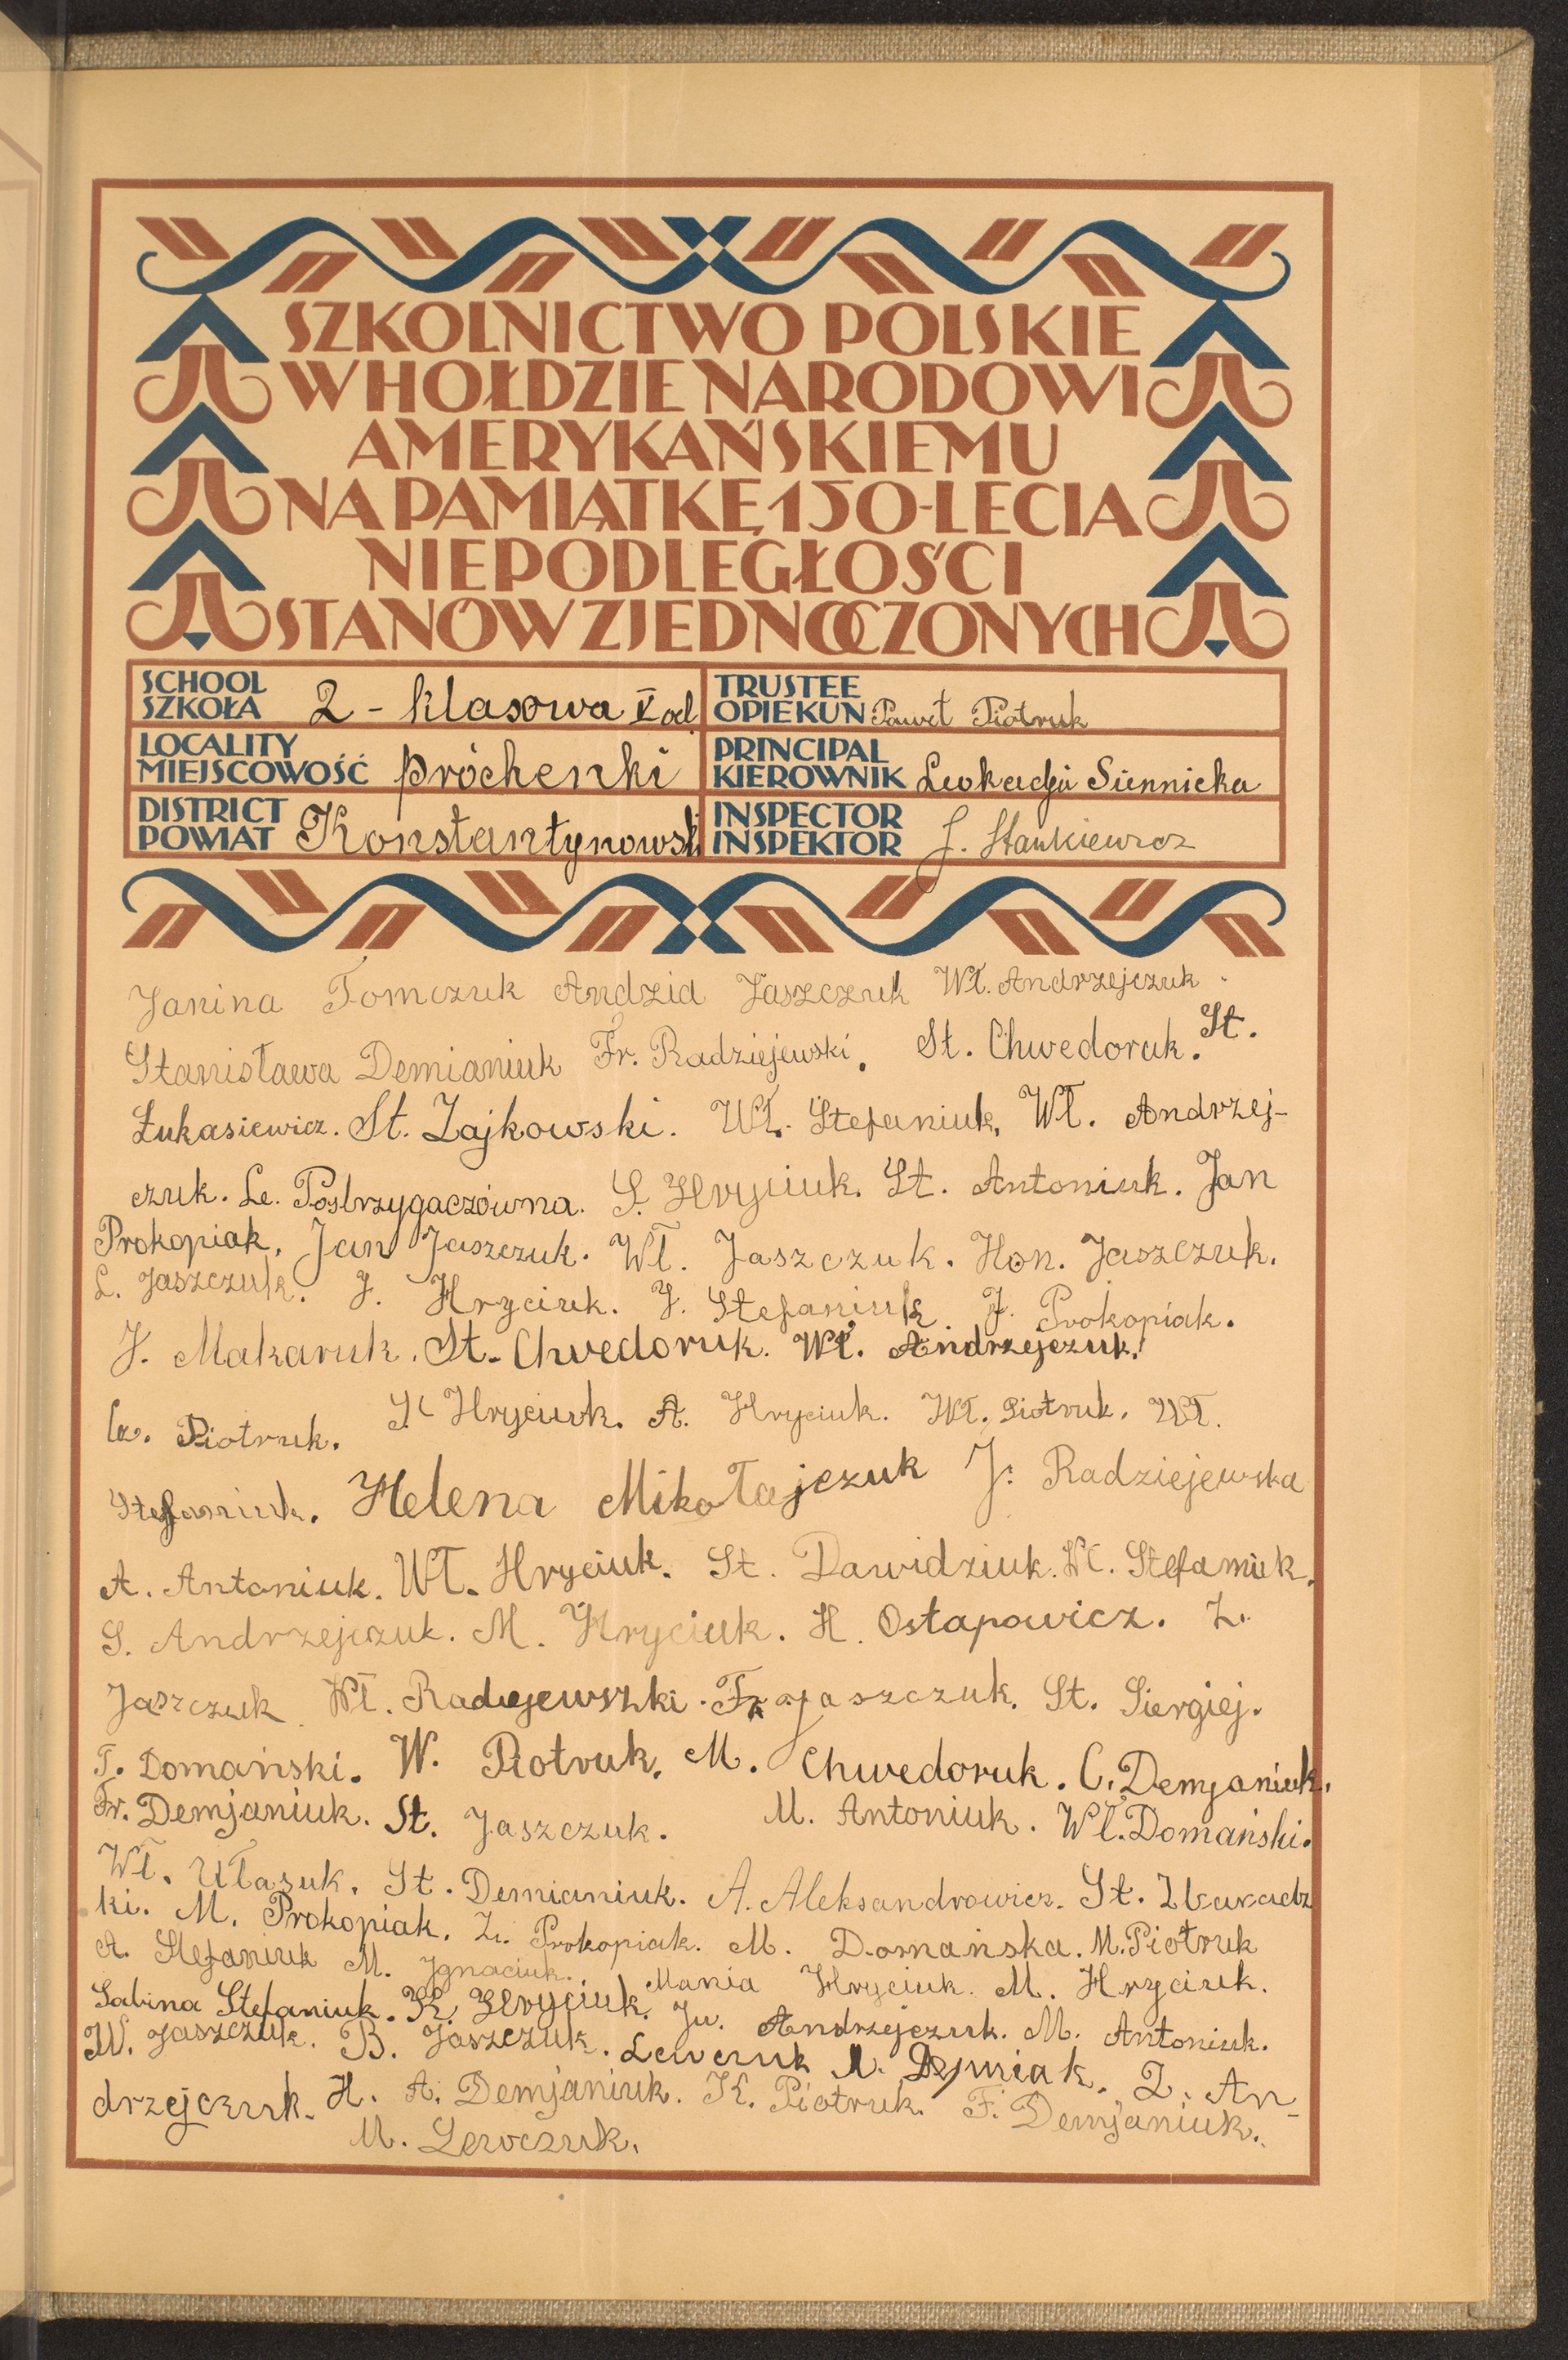 SZKOLNICTWO POLSKIE
W HOŁDZIE NARODOWI
AMERYKAŃSKIEMU
NA PAMIĄTKĘ 150-LECIA
NIEPODLEGŁOŚCI
STANÓW ZJEDNOCZONYCH
SCHOOL
SZKOŁA 2 - klasowa V od
TRUSTEE
OPIEKUN Paweł Piotruk
LOCALITY
MIEJSCOWOŚĆ Próchenki
PRINCIPAL
KIEROWNIK Leokadja Siennicka
DISTRICT
POWIAT Konstantynowski
INSPECTOR
INSPEKTOR J. Stankiewicz
Janina Tomczuk Andzia Jaszczuk Wł. Andrzejczuk
Stanisława Demianiuk Fr. Radziejewski. St. Chwedoruk. St.
Łukasiewicz. St. Zajkowski. Wł. Stefaniuk, Wł. Andrzej-
czuk. Le. Postrzygaczówna. S. Hryciuk. St. Antoniuk. Jan
Prokopiak, Jan Jaszczuk. Wł. Jaszczuk. Hon. Jaszczuk.
L. Jaszczuk. J. Hryciuk. J. Stefaniuk. J. Prokopiak.
J. Makaruk. St. Chwedoruk. Wł. Andrzejczuk.
Cz. Piotruk. Hryciuk. A. Hryciuk. Wł. Piotruk. Wł.
Stefaniuk. Helena Mikołajczuk J. Radziejewska
A. Antoniuk. Wł. Hryciuk. St. Dawidziuk. Wł. Stefaniuk.
S. Andrzejczuk. M. Hryciuk. H. Ostapowicz. Z.
Jaszczuk. Wł. Radziejewski. Fr. Jaszczuk. St. Siergiej.
T. Domański. W. Piotruk. M. Chwedoruk. C. Demjaniuk.
Fr. Demjaniuk. St. Jaszczuk. M. Antoniuk. Wł. Domański.
Wł. Ułasuk. St. Demianiuk. A. Aleksandrowicz. St. Zbaradz
ki. M. Prokopiak. Z. Prokopiak. M. Domańska. M. Piotruk
A. Stefaniuk M. Ignaciuk. Mania Hryciuk. M. Hryciuk.
Sabina Stefaniuk. K. Hryciuk. Ju. Andrzejczuk. M. Antoniuk.
W. Jaszczuk. B. Jaszczuk. Lewczuk Z. An-
drzejczuk. H. A. Demjaniuk. K. Piotruk. F. Demjaniuk.
M. Lewczuk.